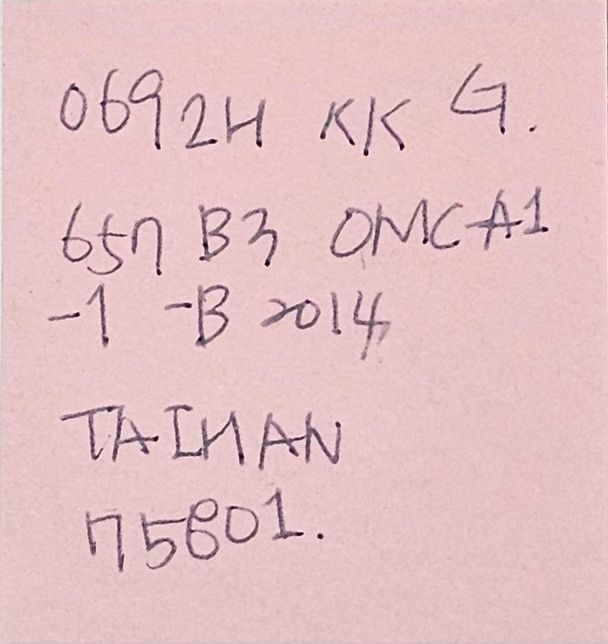 0692H KK G.
657 B3 OMCA1
-1 -B 2014
TAIHAN
75601.